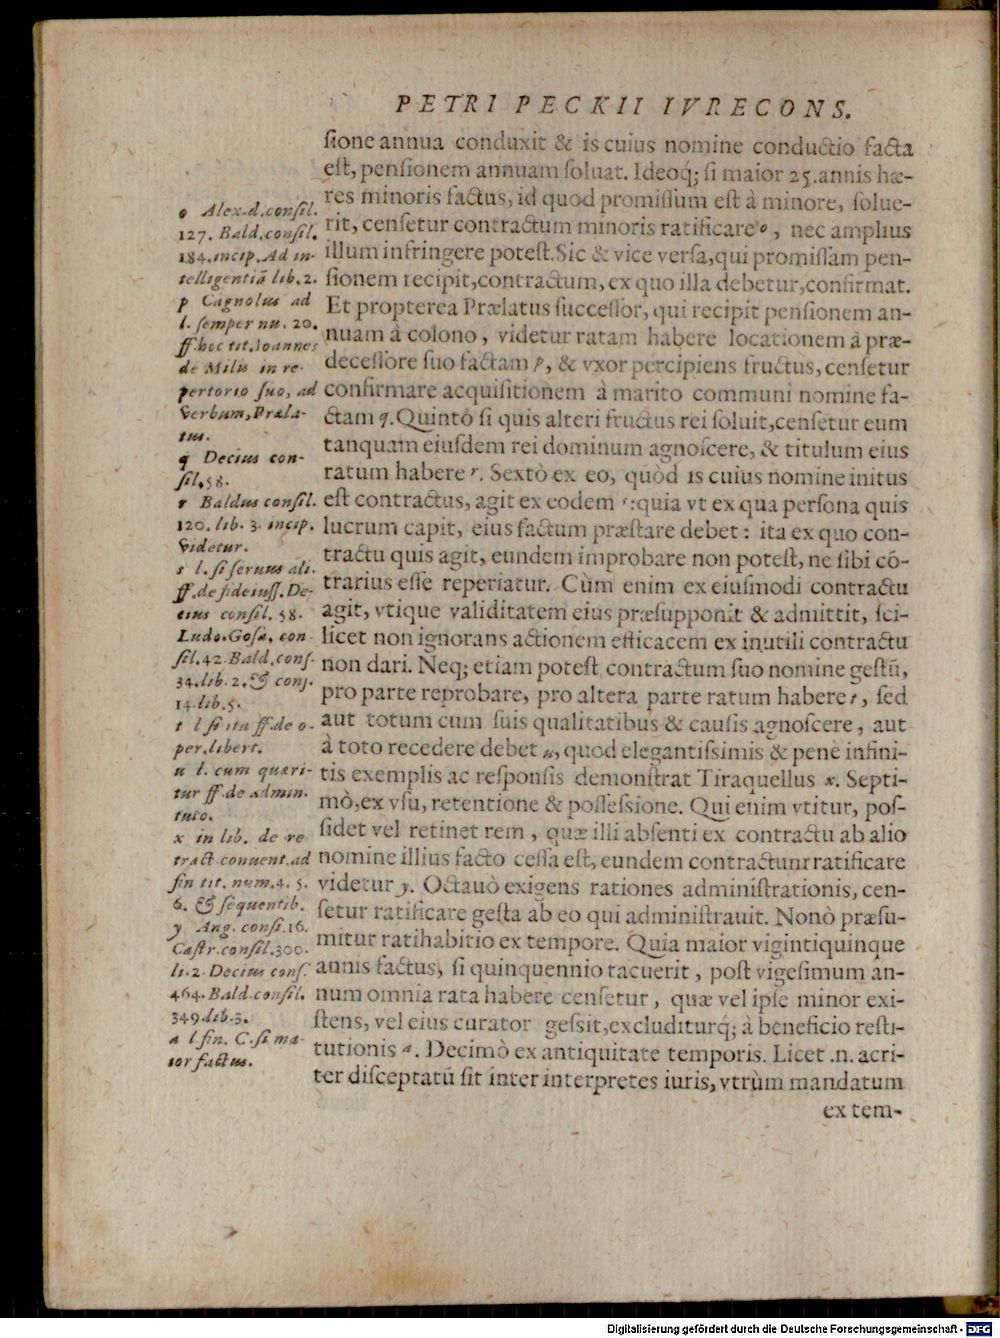 PETRI PECKII IVRECONS.
ſione annua conduxit & is cuius nomine conductio facta
eſt, penſionem annuam ſoluat. Ideoq́; ſi maior 25.annis hæ-
res minoris factus, id quod promiſſum eſt à minore, ſolue-
rit, cenſetur contractum minoris ratificare o, nec amplius
illum infringere poteſt.Sic & vice verſa,qui promiſſam pen-
ſionem recipit,contractum, ex quo illa debetur,confirmat.
Et propterea Prælatus ſucceſſor, qui recipit penſionem an-
nuam à colono, videtur ratam habere locationem à præ-
deceſſore ſuo factam p, & vxor percipiens fructus, cenſetur
confirmare acquiſitionem à marito communi nomine fa-
ctam q. Quintò ſi quis alteri fructus rei ſoluit,cenſetur eum
tanquam eiuſdem rei dominum agnoſcere, & titulum eius
ratum habere r. Sextò ex eo, quòd is cuius nomine initus
eſt contractus, agit ex eodem s:quia vt ex qua perſona quis
lucrum capit, eius factum præſtare debet: ita ex quo con-
tractu quis agit, eundem improbare non poteſt, ne ſibi cō-
trarius eſſe reperiatur. Cùm enim ex eiuſmodi contractu
agit, vtique validitatem eius præſupponit & admittit, ſci-
licet non ignorans actionem efficacem ex inutili contractu
non dari. Neq; etiam poteſt contractum ſuo nomine geſtū,
pro parte reprobare, pro altera parte ratum habere t, ſed
aut totum cum ſuis qualitatibus & cauſis agnoſcere, aut
à toto recedere debet u, quod elegantiſsimis & penè infini-
tis exemplis ac reſponſis demonſtrat Tiraquellus x. Septi-
mò,ex vſu, retentione & poſſeſsione. Qui enim vtitur, poſ-
ſidet vel retinet rem, quæ illi abſenti ex contractu ab alio
nomine illius facto ceſſa eſt, eundem contractum ratificare
videtur y. Octauò exigens rationes adminiſtrationis, cen-
ſetur ratificare geſta ab eo qui adminiſtrauit. Nonò præſu-
mitur ratihabitio ex tempore. Quia maior vigintiquinque
annis factus, ſi quinquennio tacuerit, poſt vigeſimum an-
num omnia rata habere cenſetur, quæ vel ipſe minor exi-
ſtens, vel eius curator geſsit,excluditurq́; à beneficio reſti-
tutionis a. Decimò ex antiquitate temporis. Licet .n. acri-
ter diſceptatū ſit inter interpretes iuris, vtrùm mandatum
ex tem-
o Alex.d.conſil.
127. Bald.conſil.
184.incip.Ad in-
telligentiā lib.2.
p Cagnolus ad
l. ſemper nu. 20.
ff.hoc tit.Ioannes
de Milis in re-
pertorio ſuo, ad
verbum,Præla-
tus.
q Decius con-
ſil.58.
r Baldus conſil.
120. lib. 3. incip.
Videtur.
s l. ſi ſeruus ali.
ff.de fideiuſſ. De-
cius conſil. 58.
Ludo.Goſa. con-
ſil.42 Bald.conſ.
34.lib. 2. & conſ.
14.lib.5.
t l ſi ita ff.de o-
per.libert.
u l. cum quæri-
tur ff.de admin.
tuto.
x in lib. de re
tract conuent.ad
fin tit. num.4. 5.
6. & ſequentib.
y Ang. conſi.16.
Caſtr.conſil.300.
li.2 Decius conſ.
464.Bald.conſil.
349.lib.3.
a l.fin. C.ſi ma-
ior factus.
Digitalisierung gefördert durch die Deutsche Forschungsgemeinschaft - DFG